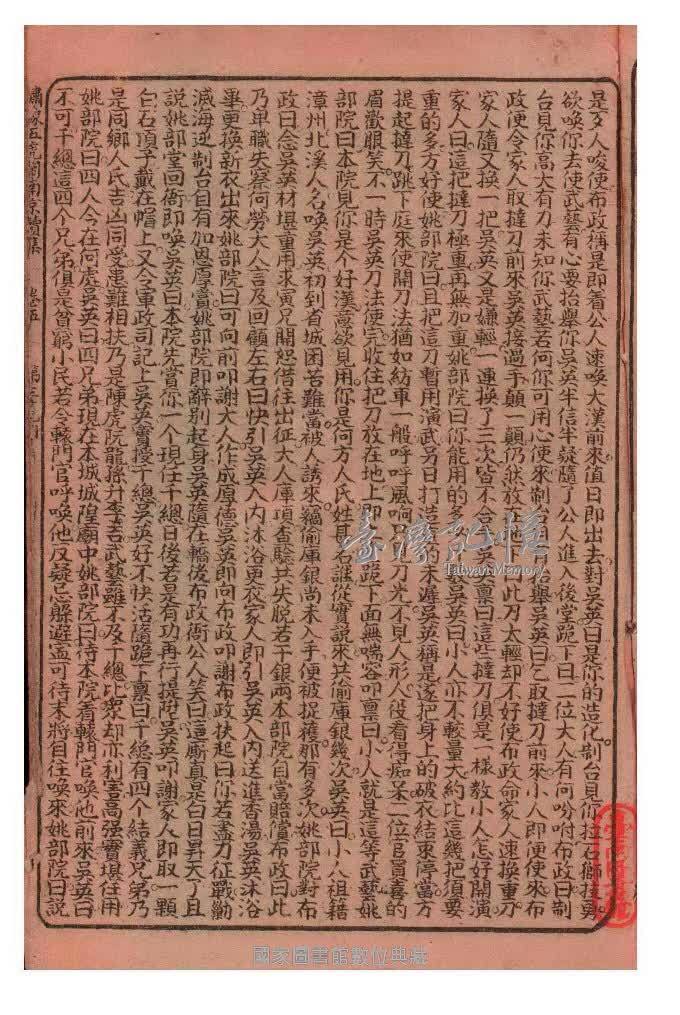 是歹人唆使布政稱是即着公人速喚大漢前來值日即出去對吳英曰是你的造化制台見你拉石獅技勇
欲喚你去使武藝有心要抬舉你吳英半信半疑隨了公人進入後堂跪下曰一位大人有何吩咐布政曰制
台見你高大有刀未知你武藝若何你可用心使來制台抬舉吳英曰乞取撻刀前來小人即便使來布
政便令家人取撻刀前來吳英接過手顛一顛仍然放在地此刀太輕却不好使布政命家人速換重刀
家人隨又換一把吳英又是嫌輕一連換了三次皆不合吳稟曰這些撻刀俱是一樣教小人怎好開演
家人曰這把撻刀極重再無加重姚部院曰你能用的多藝吳英曰小人亦不較量大約比這幾把須要
重的多方好使姚部院曰且把這刀暫用演武另日打造未遲吳英稱是遂把身上的破衣結束停當方
提起撻刀跳下庭來使開刀法猶如紡車一般呼呼風响只刀光不見人形人役看得痴呆一位官員喜的
眉歡眼笑不一時吳英刀法使完收住把刀放在地上即跪下面無喘容叩稟曰小人就是這等武藝姚
部院曰本院見你是个好漢意欲見用你是何方人氏姓甚誰從實說來共偷庫銀幾次吳英曰小人祖籍
漳州北溪人名喚吳英初到省城困苦難當被人誘來竊偷庫銀尚未入手便被捉獲那有多次姚部院對布
政曰念吳英材堪重用求寅兄開恕借往出征大人庫項查驗共失脫若干銀兩本部院自當賠償布政曰此
乃卑職失察何勞大人言及回顧左右曰快引吳英入內沐浴更衣家人即引吳英入內送進香湯吳英沐浴
畢更換新衣出來姚部院曰可向前叩謝大人作成厚德吳英即向布政叩謝布政扶起曰你若盡力征戰勦
滅海逆制台自有加恩厚賞姚部院即辭別起身吳英隨在轎後布政衙公人笑曰這厮真是白日昇天了且
說姚部堂回衙即喚吳英曰本院先賞你一个現任千總日後若是有功再行提陞吳英叩謝家人即取一顆
白石頂子戴在帽上又令軍政司記上吳英實授千總吳英好不快活隨跪下稟曰千總有四个結義兄弟乃
是同鄉人氏吉凶同受患難相扶乃是陳虎阮龍孫升李吉武藝雖不及千總比眾却亦利害高强實堪任用
姚部院曰四人今在何處吳英曰四兄弟現在本城城隍廟中姚部院曰待本院着轅門官喚他前來吳英曰
不可千總這四个兄弟俱是貧窮小民若令轅門官呼喚他反疑忌觧避盍可待末將自往喚來姚部院曰說
繡像五虎鬧南京續集 卷五
臺灣記憶
Taiwan Memory
國家圖書館數位典藏